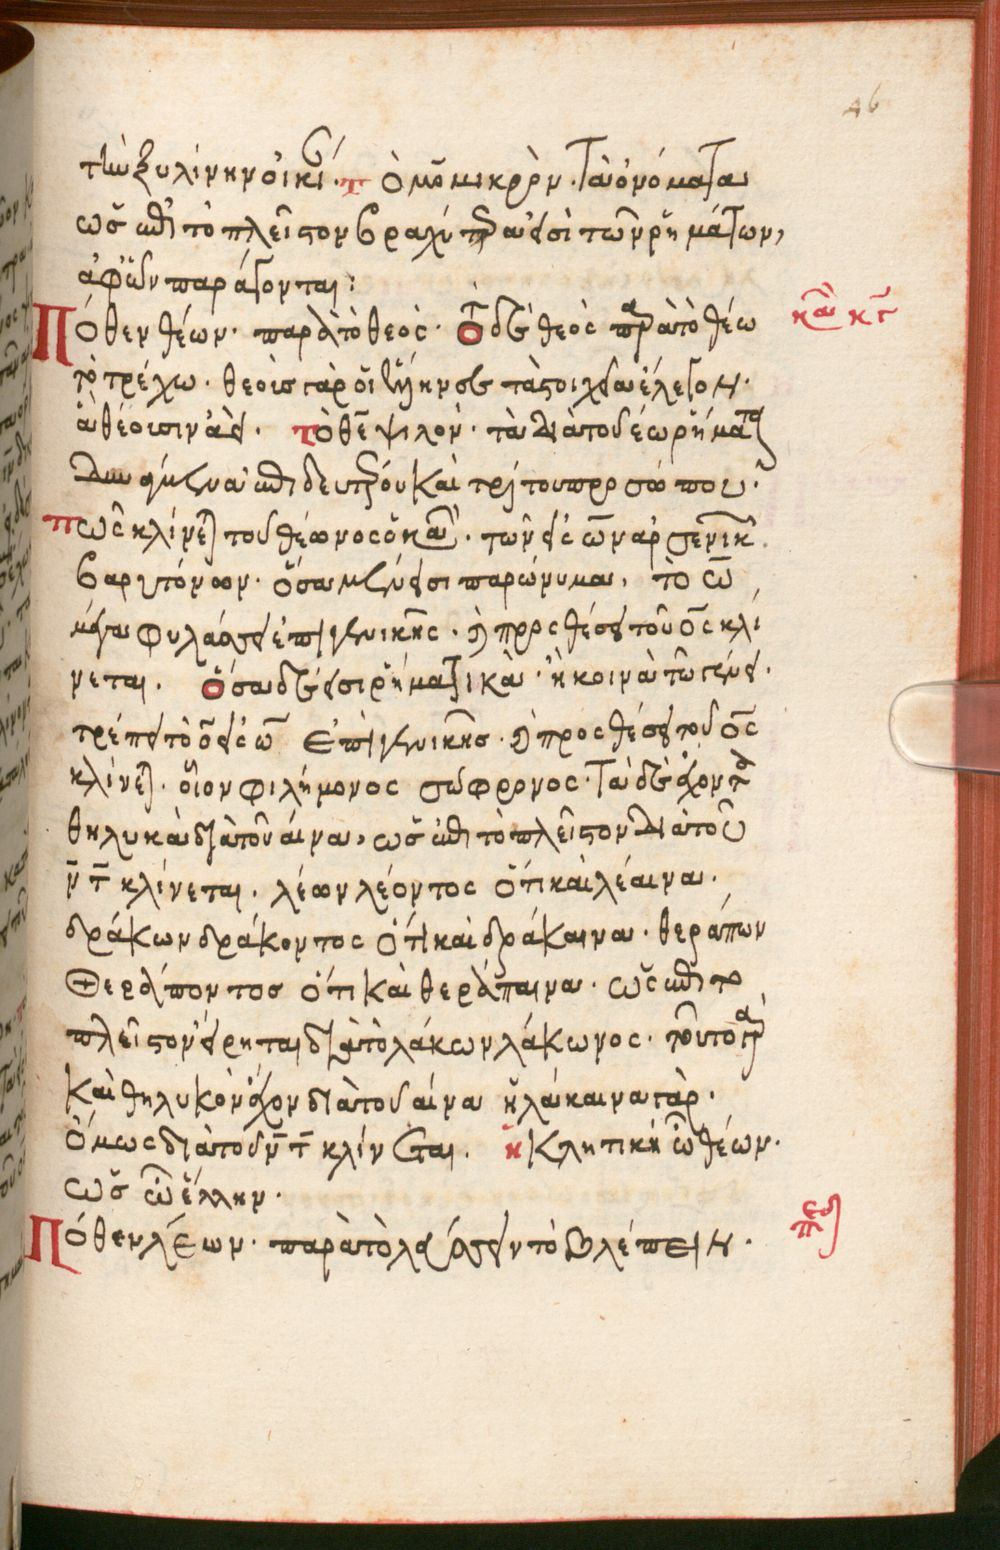 46
τὴν ξυλίνην οἰκί. τὸ μῦ μικρὸν. τὰ ὀνόματα
ὡς ἐπὶ τὸ πλεῖστον βραχύτερα εἰσὶ τῶν ρημάτων,
ἀφ' ὧν παράγονται:
Πόθεν θέων. παρὰ τὸ θεός. ὁ δὲ θεὸς παρὰ τὸ θέω
τὸ τρέχω. θεοὺς γὰρ οἱ ἕλληνες τὰ στοιχεῖα ἔλεγον.
ἃ θέουσιν ἀεὶ. τὸ θε ψιλὸν. τὰ διὰ τοῦ έω ρήματα
ἐπὶ δευτέρου καὶ τρίτου προσώπου.
πῶς κλίνεται τοῦ θέωνος ὁ κανὼν. τῶν εἰς ων ἀρσενικῶν
βαρυτόνων. ὅσα μὲν εἰσι παρώνυμα, τὸ ω
μέγα φυλάσσει ἐπὶ γενικῆς. καὶ προσθέσει τοῦ ος κλί
νεται. ὅσα δὲ εἰσι ρηματικὰ. ἢ κοινὰ τῶ γένει.
τρέπει τὸ ω εἰς ο ἐπὶ γενικῆς. καὶ προσθέσει τοῦ ος
κλίνεται. οἷον φιλήμονος σώφρονος. τὰ δὲ ἔχοντα
θηλυκὰ διὰ τοῦ αινα, ὡς ἐπὶ τὸ πλεῖστον διὰ τοῦ
ν τ κλίνεται. λέων λέοντος ὅτι καὶ λέαινα.
δράκων δράκοντος ὅτι καὶ δράκαινα. θεράπων
θεράποντος ὅτι καὶ θεράπαινα. ὡς ἐπὶ τὸ
πλεῖστον εἴρηται διὰ τὸ λάκων λάκωνος. τοῦτο γὰρ
καὶ θηλυκὸν ἔχον διὰ τοῦ αινα ἡ λάκαινα γὰρ.
ὅμως διὰ τοῦ ν τ κλίνεται. ἡ κλητικὴ ὦ θέων.
ὡς ὦ ἕλλην.
Πόθεν λέων. παρὰ τὸ λάειν τὸ βλέπειν.